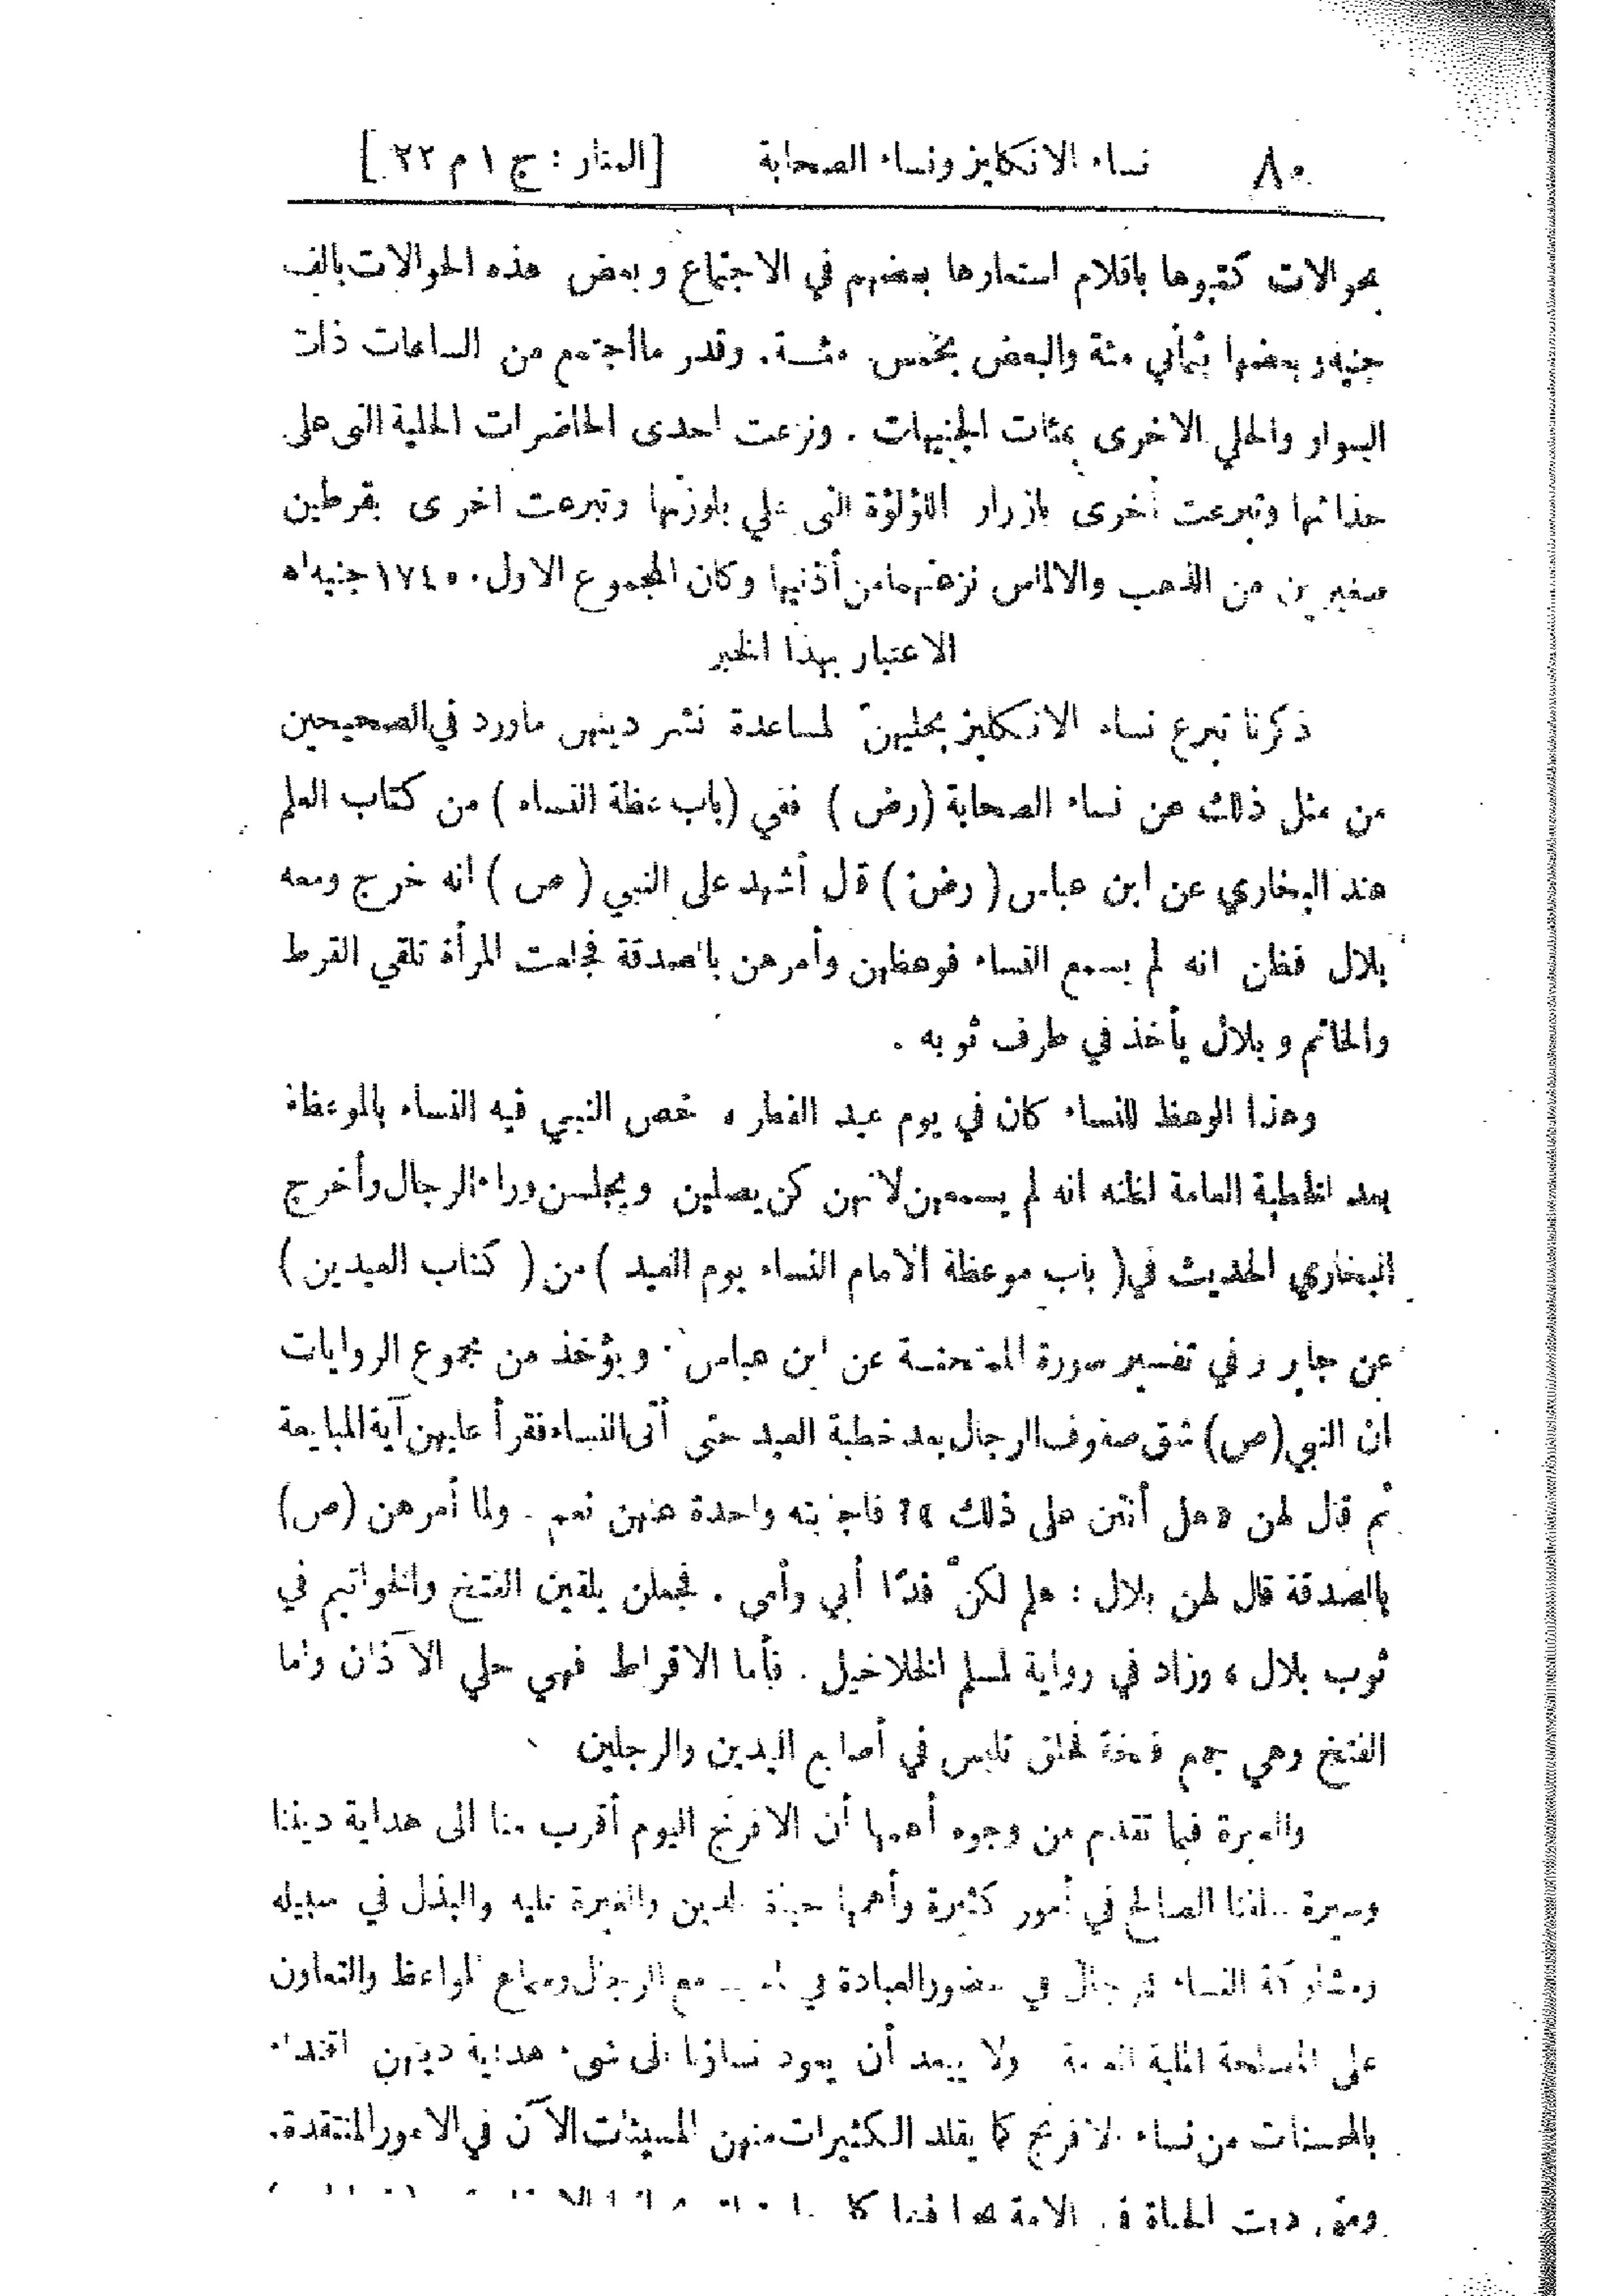 ٨٠ نساء الانكليز ونساء الصحابة [المنار : ج ١ م ٢٢]
بحوالات كتبوها باقلام استعارها بعضهم في الاجتماع وبعض هذه الحوالات بالف
جنيه وبعضها بثماني مئة والبعض بخمس مئة. وقدر ما اجتمع من الساعات ذات
السوار والحلي الاخرى بمئات الجنيهات . ونزعت احدى الحاضرات الحلية التى على
حذائها وتبرعت أخرى بازرار اللؤلؤة التى على بلوزتها وتبرعت اخرى بقرطين
صغيرين من الذهب والالماس نزعتهما من أذنيها وكان المجموع الاول ١٧٤٥٠ جنيه اه
الاعتبار بهذا الخبر
ذكرنا تبرع نساء الانكليز بحليهنّ لمساعدة نشر دينهن ماورد في الصحيحين
من مثل ذلك عن نساء الصحابة (رض) ففي (باب عظة النساء) من كتاب العلم
عند البخاري عن ابن عباس (رض) قال أشهد على النبي (ص) انه خرج ومعه
بلال فظن انه لم يسمع النساء فوعظهن وأمرهن بالصدقة فجعلت المرأة تلقي القرط
والخاتم وبلال يأخذ في طرف ثوبه .
وهذا الوعظ للنساء كان في يوم عيد الفطر ، خص النبي فيه النساء بالموعظة
بعد الخطبة العامة لظنه انه لم يسمعهن لانهن كن يصلين ويجلسن وراء الرجال وأخرج
البخاري الحديث في (باب موعظة الامام النساء يوم العيد) من (كتاب العيدين)
عن جابر وفي تفسير سورة الممتحنة عن ابن عباس . ويؤخذ من مجموع الروايات
ان النبي (ص) شق صفوف الرجال بعد خطبة العيد حتى أتى النساء فقرأ عليهن آية المبايعة
ثم قال لهن «هل أنتن على ذلك ؟» فاجابته واحدة منهن نعم . ولما أمرهن (ص)
بالصدقة قال لهن بلال : هلم لكنّ فدًا أبي وأمى . فجعلن يلقين الفتخ والخواتيم في
ثوب بلال ، وزاد في رواية لمسلم الخلاخيل . فأما الاقراط فهي حلي الآذان واما
الفتخ وهي جمع فتخة فحلق تلبس في أصابع اليدين والرجلين
والعبرة فيما تقدم من وجوه أهمها أن الافرنج اليوم أقرب منا الى هداية ديننا
وسيرة سلفنا الصالح في أمور كثيرة وأهمها حياة الدين والغيرة عليه والبذل في سبيله
ومشاركة النساء للرجال في حضور العبادة في مع الرجال وسماع المواعظ والتعاون
على المصلحة الملية العامة ولا يبعد أن يعود نساؤنا الى شيء هداية دينهن اقتداء
بالمحسنات من نساء الافرنج كما يقلد الكثيرات منهن المسيئات الآن في الامور المنتقدة.
ومتى دبت الحياة في الامة